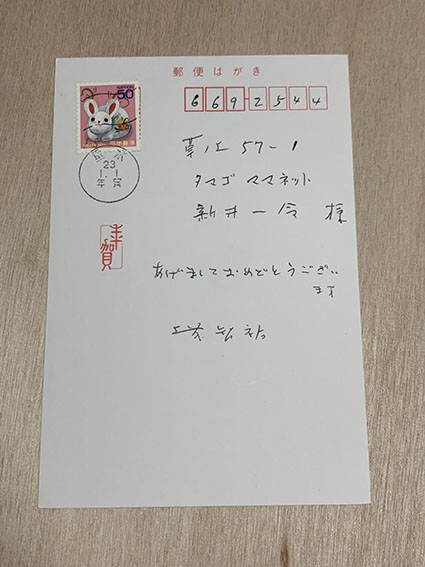 郵便はがき
NIPPON 50
日本郵便
669-2544
23
1.1
年賀
草ノ上 57-1
タマゴママネット
新井一令 様
年賀
あげましておめでとうござい
ます